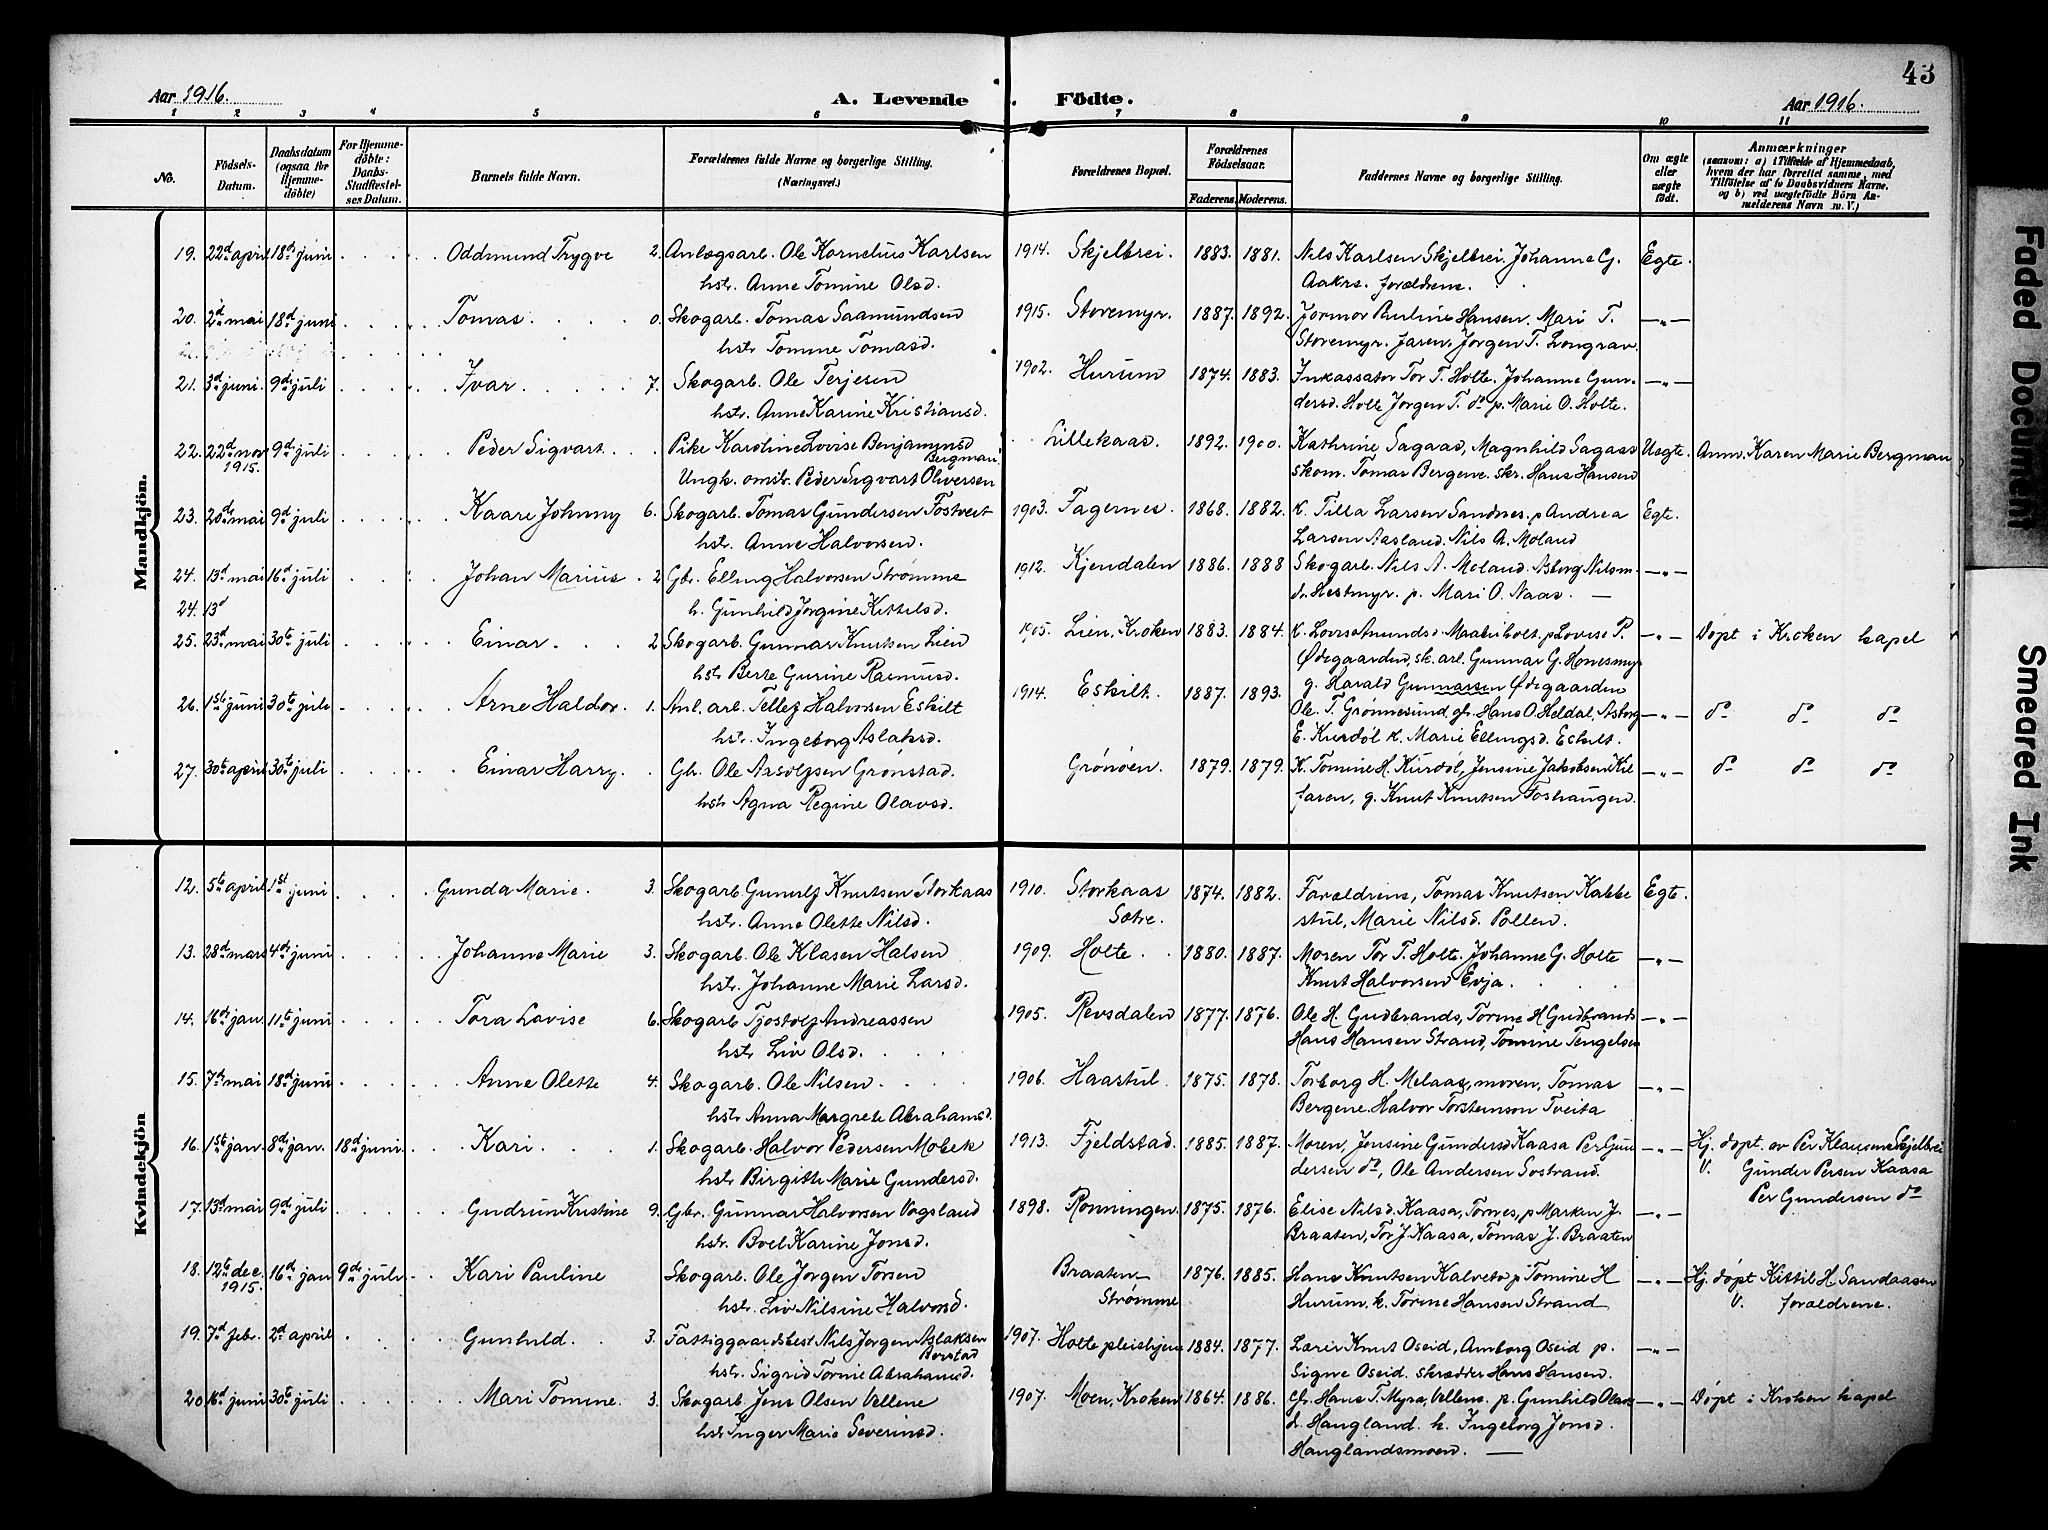 43
Aar 1916. A. Levende Födte. Aar 1916.
1 2 3 4 5 6 7 8 9 10 11
No. Födsels-Datum. Daabsdatum (ogsaa for Hjemmedöbte) For Hjemmedöbte: Daabs-Stadfæstelses Datum. Barnets fulde Navn. Forældrenes fulde Navne og borgerlige Stilling. (Næringsvei.) Forældrenes Bopæl. Forældrenes Födselsaar. Faderens. Moderens. Faddernes Navne og borgerlige Stilling. Om ægte eller uægte födt. Anmærkninger (saasom: a) i Tilfælde af Hjemmedaab, hvem der har forrettet samme, med Tilföielse af to Daabsvidners Navne, og b) ved uægtefödte Börn Anmelderens Navn m. V.)
Mandkjön.
19. 22d april 18de juni Oddmund Trygve 2. Anlægsarb. Ole Kornelius Karlsen 1914. Skjelbrei. 1883. 1881. Nils Karlsen Skjelbrei. Johanne G. Egte.
hstr. Anne Tomine Olsd. Aakre. forældrene.
20. 2d mai 18d juni Tomas. 0. Skogarb. Tomas Saamundsen 1915. Storemyr. 1887. 1892. Jormor Pauline Hansen. Mari T. —„—
hstr. Tomine Tomasd. Storemyr. Jaren. Jørgen T. Longrav.
21. 3d juni. 9de juli Ivar 7. Skogarb. Ole Terjesen 1902. Hurum 1874. 1883. Inkassator Tor T. Holte. Johanne Gun- —„—
hstr. Anne Karine Kristiansd. dersd. Holte Jørgen T. do p. Marie O. Holte.
22. 22d nov. 9de juli Peder Sigvart. Pike Karoline Lovise Benjaminsd Lillekaas. 1892. 1900. Kathrine Sagaas, Magnhild Sagaas Uegte. Anm. Karen Marie Bergman
1915. Bergman
Ungk. omstr. Peder Sigvart Oliversen skom. Tomas Bergene. skr. Hans Hansen
23. 20de mai 9d juli Kaare Johnny 6. Skogarb. Tomas Gundersen Tostveit 1903. Fagernes. 1868. 1882. k. Tilla Larsen Sandnes. p Andrea Egte.
hstr. Anne Halvorsen. Larsen Aasland. Nils A. Moland
24. 13d mai 16d juli Johan Marius. 2 Gbr. Elling Halvorsen Strømme 1912. Kjendalen 1886. 1888 Skogarb. Nils A. Moland. Asborg Nilsen —„—
24. 13d h. Gunhild Jørgine Kittelsd. Hestmyr. p. Mari O. Naas. —
25. 23d mai 30te juli Einar. 2 Skogarb. Gunnar Knutsen Lien 1905. Lien, Kroken 1883. 1884. k. Lovise Amundsd p Lovise P. —„— Døpt i Kroken kapel
hstr Berte Gurine Rasmusd. Ødegaarden, sk. arb. Gunnar G. Honesmyr
g. Harald Gunnarsen Ødegaarden
26. 1ste juni 30te juli Arne Haldor. 1. Anl. arb. Tellef Halvorsen Eskilt 1914. Eskilt. 1887. 1893. Ole. T. Grønnesund, gbr. Hans O. Heldal, Asborg —„— do do do
hstr. Ingeborg Aslaksd. E. Kurdøl k. Marie Ellingsd. Eskilt.
27. 30te april 30te juli Einar Harry. Gbr. Ole Aasolfsen Grønstad. Grønøen. 1879. 1879. K. Tomine H. Kurdøl, Jensine Jakobsen —„— do do do
hstr Agna Regine Olavsd. faren, g. Knut Knutsen Foshaugen.
Kvindekjön
12. 5te april 1ste juni Gunda Marie. 3. Skogarb. Gunulf Knutsen Storkaas 1910. Storkaas 1874. 1882. Forældrene, Tomas Knutsen Kabbe Egte.
hstr. Anne Olette Nilsd. Sætre. stul, Marie Nilsd. Pollen.
13. 28d mars 4de juni Johanne Marie 3. Skogarb. Ole Klasen Halsen 1909. Holte. 1880. 1887. Moren Tor T. Holte. Johanne G. Holte —„—
hstr. Johanne Marie Larsd. Knut Halvorsen Evja.
14. 16de jan. 11te juni Tora Lovise 6. Skogarb. Tjostolf Andreassen 1905. Revsdalen 1877. 1876. Ole H. Gudbrands, Torine H Gudbrands —„—
hstr. Liv Olsd. Hans Hansen Strand, Tomine Tengelsen
15. 7de mai 18d juni Anne Olette 4. Skogarb. Ole Nilsen 1906. Haastul. 1875. 1878. Torborg H. Melaas, moren, Tomas —„—
hstr Anna Margrete Abrahamsd. Bergene. Halvor Torstenson Tveita
16. 1ste jan. 8de jan. 18d juni. Kari. 1. Skogarb. Halvor Pedersen Mobek 1913. Fjeldstad. 1885. 1887. Moren, Jensine Gundersd Kaasa Per Gun- —„— Hj. døpt. av Per Klausen Skjelbrei
hstr. Birgitte Marie Gundersd. dersen do, Ole Andersen Sostrand. V. Gunder Persen Kaasa
Per Gundersen do
17. 13d mai 9de juli Gudrun Kristine 9. Gbr. Gunnar Halvorsen Vogsland 1898. Rønningen. 1875. 1876. Elise Nilsd. Kaasa, Tornes, p Marken J. —„—
hstr. Boel Karine Jonsd. Braaten, Tor J. Kaasa, Tomas J. Braaten
18. 12te dec. 16d jan 9de juli Kari Pauline Skogarb. Ole Jørgen Torsen Braaten— 1876. 1885. Hans Knutsen Kalveto p Tomine H —„— Hj. døpt Kittil H Sandaasen
1915. hstr. Liv Nilsine Halvorsd. Strømme Hurum, k. Torine Hansen Strand V. forældrene.
19. 7d febr. 2d april Gunhild. 3. Fattiggaardsbest Nils Jørgen Aslaksen 1907. Holte pleiehjem 1884. 1877. Lærer Knut Oseid, Amborg Oseid p. —„—
Borstad
hstr. Sigrid Torine Abrahamsd. Signe Oseid. skrædder Hans Hansen.
20. juni 30te juli Mari Tomine. 3. Skogarb. Jens Olsen Vellene 1907. Moen, Kroken 1864. 1886. Gbr. Hans T. Myra, Vellene. p. Gunhild Olavs —„— Døpt i Kroken kapel
hstr Inger Marie Severinsd. d. Haugland. k. Ingeborg Jonsd.
Hauglandsmoen. —
Faded Document
Smeared Ink